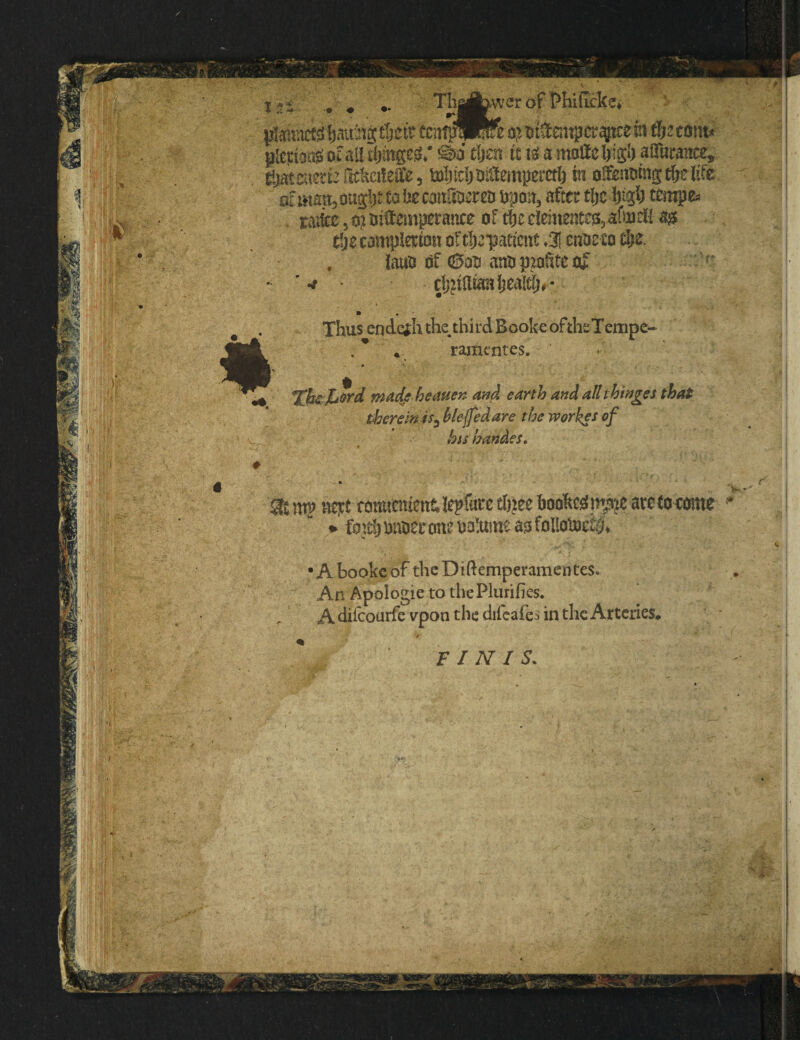 122 The Bower of Phisicke.
planacts hauing their temperature oꝛ distemperance in the com-
plexions of all thinges: So then it is a moste high assurance,
that euerie sickenesse, which distempereth in offending the life
of man, ought to be considered vpon, after the high tempe-
raice, oꝛ distemperance of the elementes, aswell as
the complexion of the patient. I ende to the
laud of God and pꝛofite of
chꝛistian health.
Thus endeth the third Booke of the Tempe-
ramentes.
The Lord made heauen and earth and all thinges that
therein is, blessed are the workes of
his handes.
At my next conuenient leysure thꝛee bookes moꝛe are to come
foꝛth vnder one volume as followeth.
A booke of the Distemperamentes.
An Apologie to the Plurisies.
A discourse vpon the diseases in the Arteries.
FINIS.